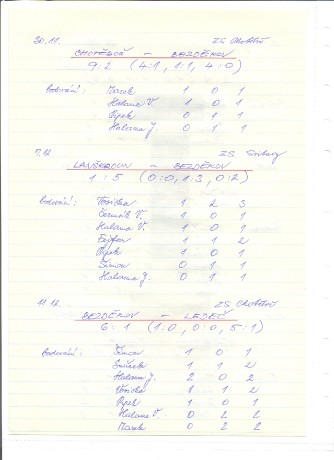 30.11. ZS Chotěboř
CHOTĚBOŘ - BEZDĚKOV
9:2 (4:1, 1:1, 4:0)
Bodování: Marek 1 0 1
Halama V. 1 0 1
Pipek 0 1 1
Halama J. 0 1 1
7.12. ZS
LANŠKROUN - BEZDĚKOV
1:5 (0:0, 1:3, 0:2)
Bodování: 1 2 3
Čermák V. 1 0 1
Halama V. 1 0 1
1 1 2
Pipek 1 0 1
Šimon 0 1 1
Halama J. 0 1 1
11.12. ZS Chotěboř
BEZDĚKOV - LEDEČ
6:1 (1:0, 0:0, 5:1)
Bodování: Šimon 1 0 1
1 1 2
Halama J. 2 0 2
1 1 2
Pipek 1 0 1
Halama V. 0 2 2
Marek 0 2 2